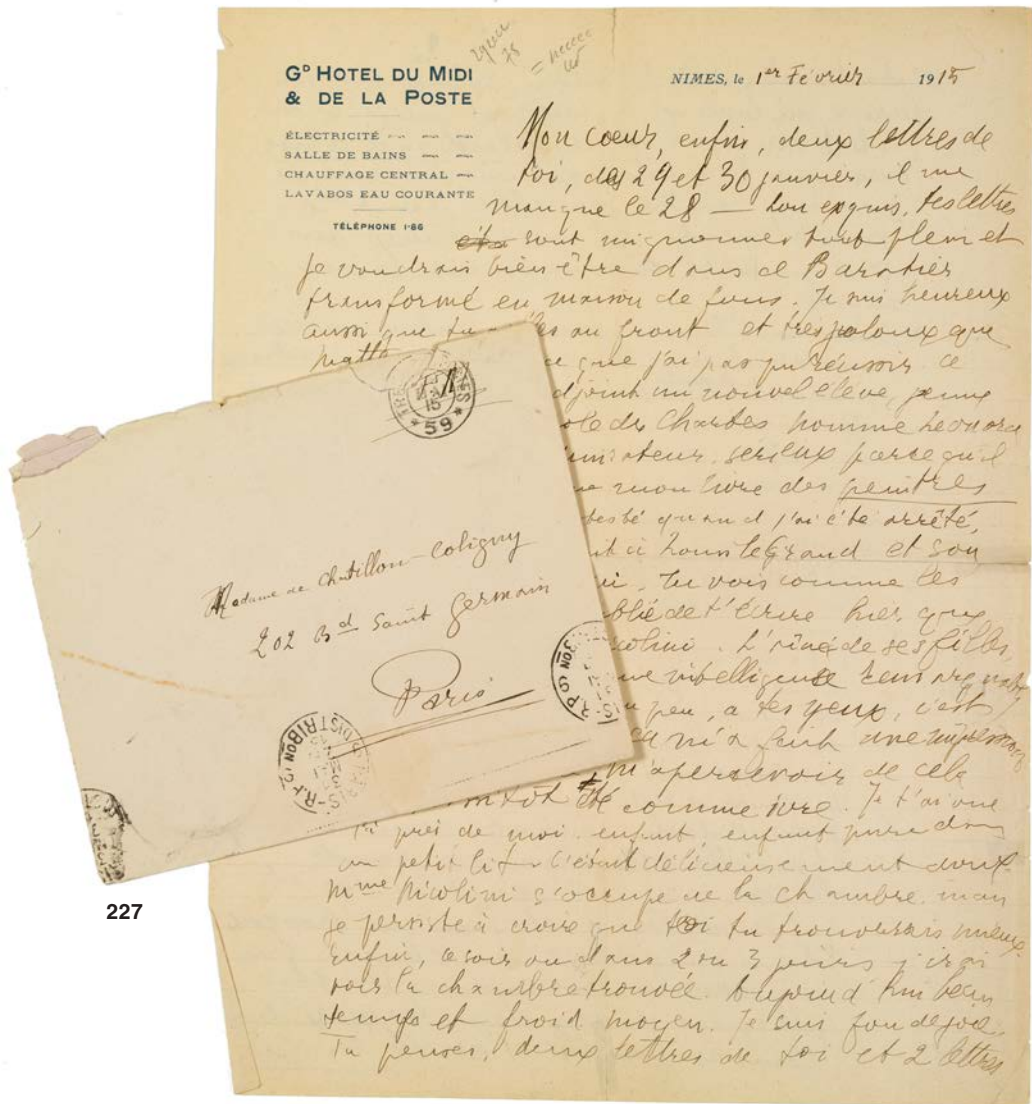 G^D HOTEL DU MIDI
& DE LA POSTE
ÉLECTRICITÉ
SALLE DE BAINS
CHAUFFAGE CENTRAL
LAVABOS EAU COURANTE
TÉLÉPHONE 1-86
NIMES, le 1er Février 1915
Mon cœur, enfin, deux lettres de
toi, des 29 et 30 janvier, il me
manque le 28 — ton exquis, tes lettres
sont mignonnes tout plein et
je voudrais bien être dans ce Baratier
transformé en maison de fous. Je suis heureux
aussi que tu au front et très jaloux que
que j'ai pas pu réussir ce
djoint un nouvel élève, jeune
ole des Chartes homme
sérieux parce qu'il
mon livre des peintres
testé quand j'ai été arrêté,
Louis le Grand et son
tu vois comme les
blié de t'écrire hier que
colini. L'aînée de ses filles,
ne intelligence remarquable
peu, a tes yeux, c'est
m'a fait une impression
m'apercevoir de cela
ntôt été comme ivre. Je t'ai vue
près de moi enfant, enfant pure dans
un petit lit c'était délicieusement doux.
Mme Nicolini s'occupe de la chambre mais
je persiste à croire que toi tu trouverais mieux.
Enfin, ce soir ou dans 2 ou 3 jours j'irai
voir la chambre trouvée. Aujourd'hui beau
temps et froid moyen. Je suis fou de joie.
Tu penses, deux lettres de toi et 2 lettres
15
* 59 *
Madame de Chatillon-Coligny
202 Bd Saint Germain
Paris
DISTRIBON
227